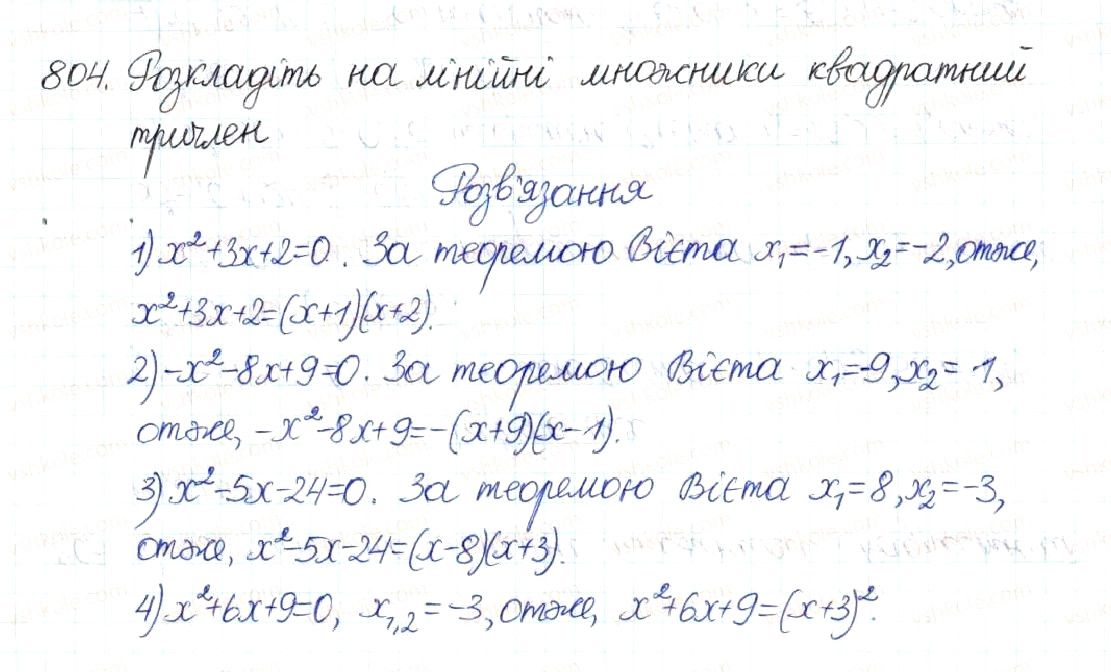 804. Розкладіть на лінійні множники квадратний
тричлен
Розв'язання
1) x²+3x+2=0. За теоремою Вієта x₁=-1, x₂=-2, отже,
x²+3x+2=(x+1)(x+2).
2) -x²-8x+9=0. За теоремою Вієта x₁=-9, x₂=1,
отже, -x²-8x+9=-(x+9)(x-1).
3) x²-5x-24=0. За теоремою Вієта x₁=8, x₂=-3,
отже, x²-5x-24=(x-8)(x+3).
4) x²+6x+9=0, x₁,₂=-3, отже, x²+6x+9=(x+3)².